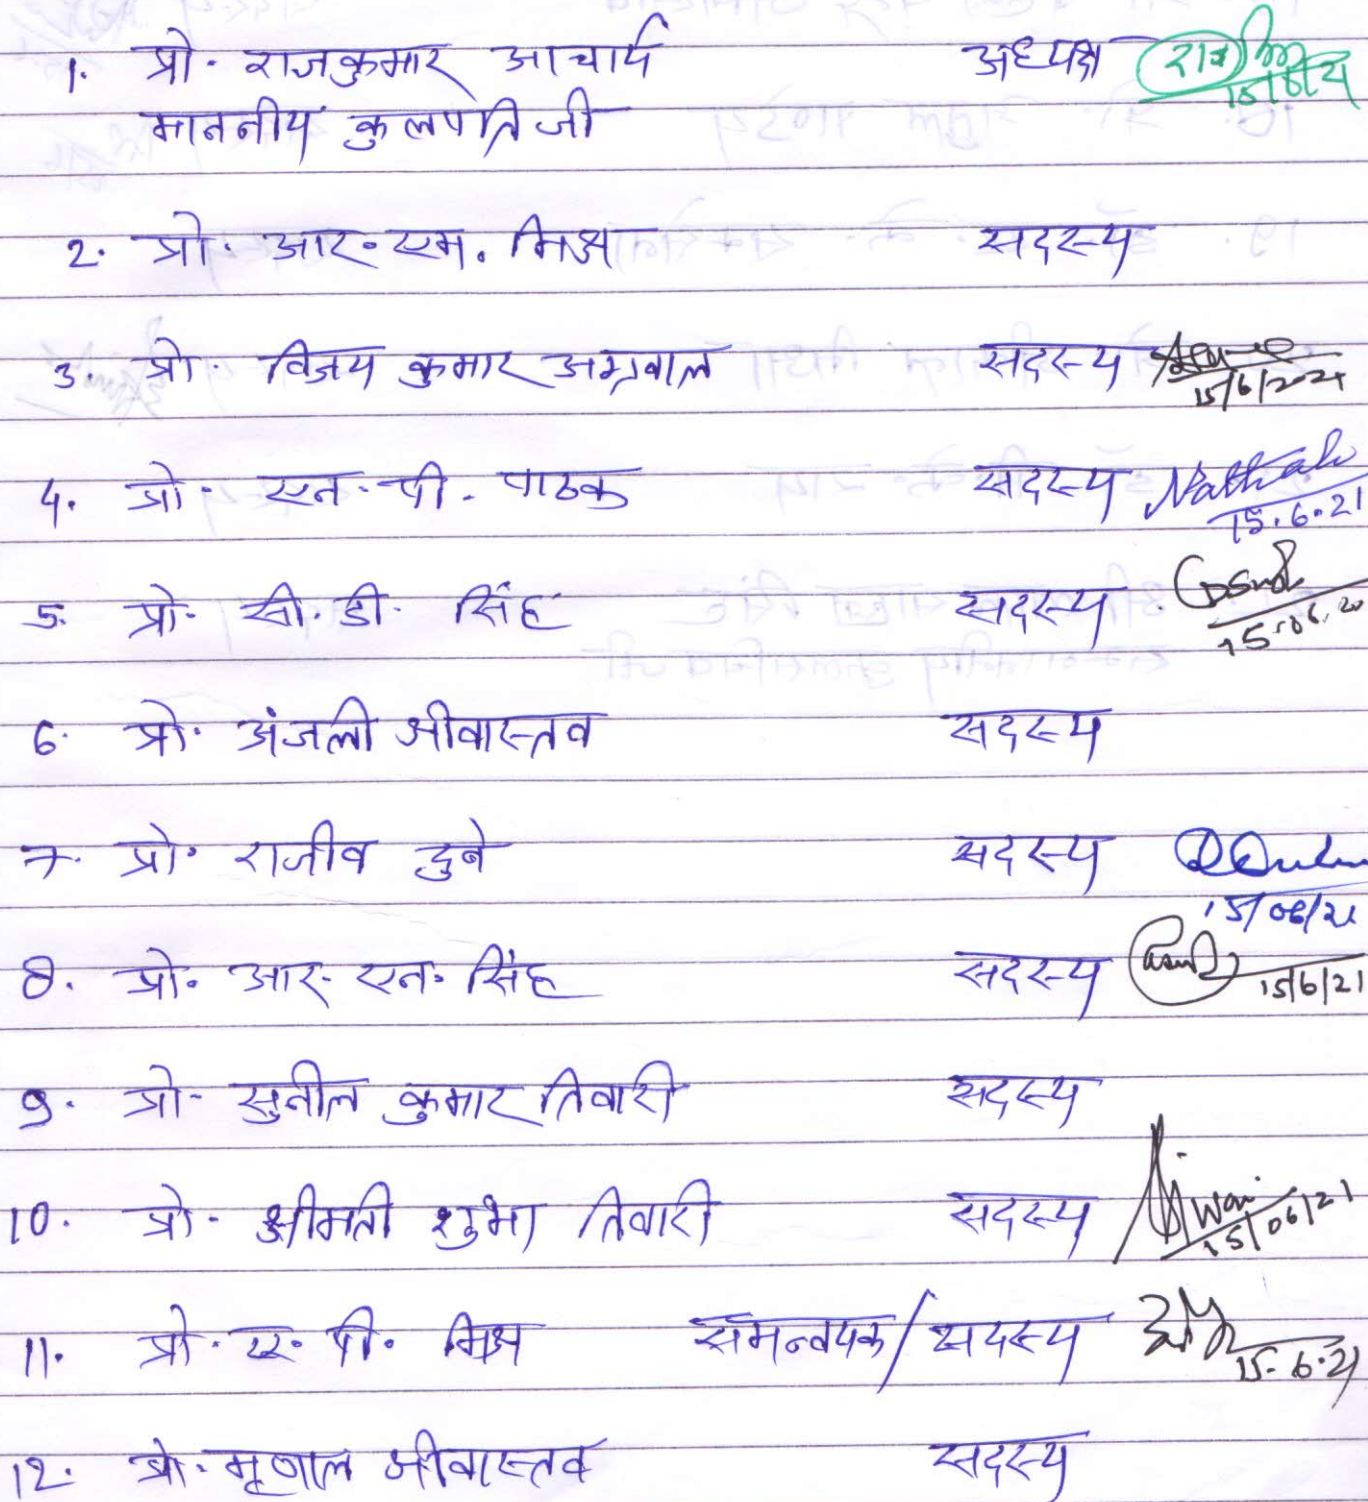 1. प्रो. राजकुमार आचार्य अध्यक्ष
माननीय कुलपति जी
2. प्रो. आर. एम. मिश्र सदस्य
3. प्रो. विजय कुमार अग्रवाल सदस्य 15/6/2021
4. प्रो. एन. पी. पाठक सदस्य 15.6.21
5. प्रो. सी. डी. सिंह सदस्य 15.06.20
6. प्रो. अंजली श्रीवास्तव सदस्य
7. प्रो. राजीव दुबे सदस्य 15/06/21
8. प्रो. आर. एन. सिंह सदस्य 15/6/21
9. प्रो. सुनील कुमार तिवारी सदस्य
10. प्रो. श्रीमती शुभा तिवारी सदस्य 15/06/21
11. प्रो. ए. पी. मिश्र समन्वयक/सदस्य 15.6.21
12. प्रो. मृणाल श्रीवास्तव सदस्य